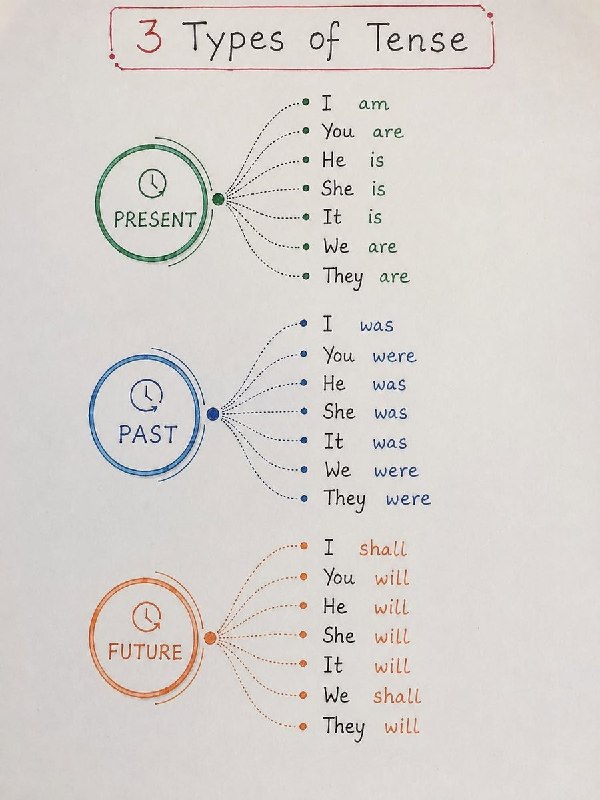 3 Types of Tense
PRESENT
I am
You are
He is
She is
It is
We are
They are
PAST
I was
You were
He was
She was
It was
We were
They were
FUTURE
I shall
You will
He will
She will
It will
We shall
They will